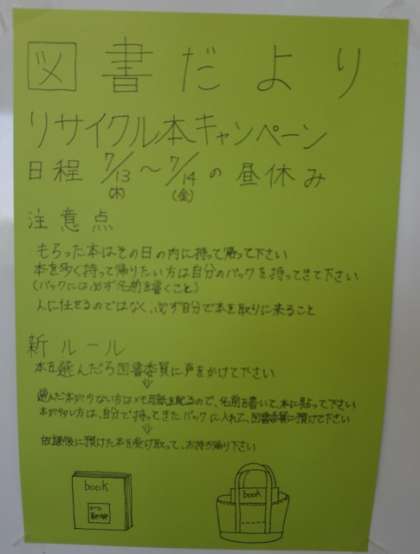 図書だより
リサイクル本キャンペーン
日程 7/13(木)〜7/14(金)の昼休み
注意点
もらった本はその日の内に持って帰って下さい
本を多く持って帰りたい方は自分のバックを持ってきて下さい
(バックには必ず名前を書くこと)
人に任せるのではなく、必ず自分で本を取りに来ること
新ルール
本を選んだら図書委員に声をかけて下さい
選んだ本が少ない方はメモ用紙を配るので、名前を書いて、本に貼って下さい
本が多い方は、自分で持ってきたバックに入れて、図書委員に預けて下さい
放課後に預けた本を受け取って、お持ち帰り下さい
book
book